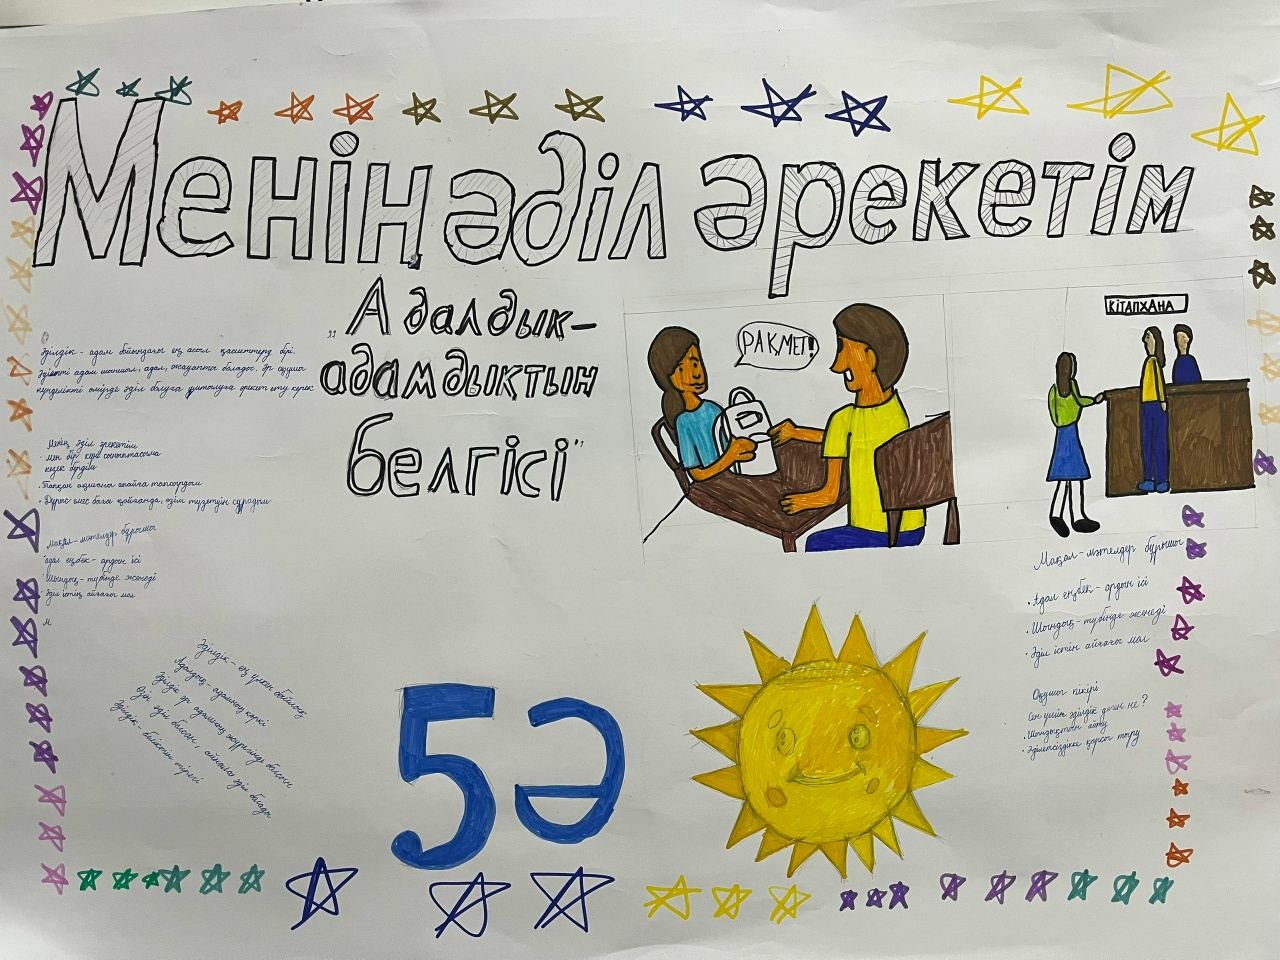 Менің әділ әрекетім
„Адалдық–
адамдықтың
белгісі”
РАҚМЕТ!
КІТАПХАНА
Әділдік - адам бойындағы ең асыл қасиеттерд бірі.
Әділетті адам шыншыл, адал, жауапты болады. Әр оқушы
күнделікті өмірде әділ болуға ұмтылуға әрекет ету керек
Менің әділ әрекетім
• Мен бір күні сыныптасыма
кезек бердім
• Тапқан ақшаны апайға тапсырдым
• Дұрыс емес баға қойғанда, әділ түзетуін сұрадым
Мақал-мәтелдер бұрышы
• Адал еңбек - ардың ісі
• Шындық - түбінде жеңеді
• Әділ істің айғағы мол
м
Әділдік - ең үлкен байлық
Адалдық - адамның көркі
Әділдік әр адамның жүрегінде болсын
Өзің әділ болсаң, айналаң әділ болады
Әділдік - биіктің тірегі
5Ә
Мақал-мәтелдер бұрышы
• Адал еңбек - ардың ісі
• Шындық - түбінде жеңеді
• Әділ істің айғағы мол
Оқушы пікірі
Сен үшін әділдік деген не?
• Шындықты айту
• Әділетсіздікке қарсы тұру